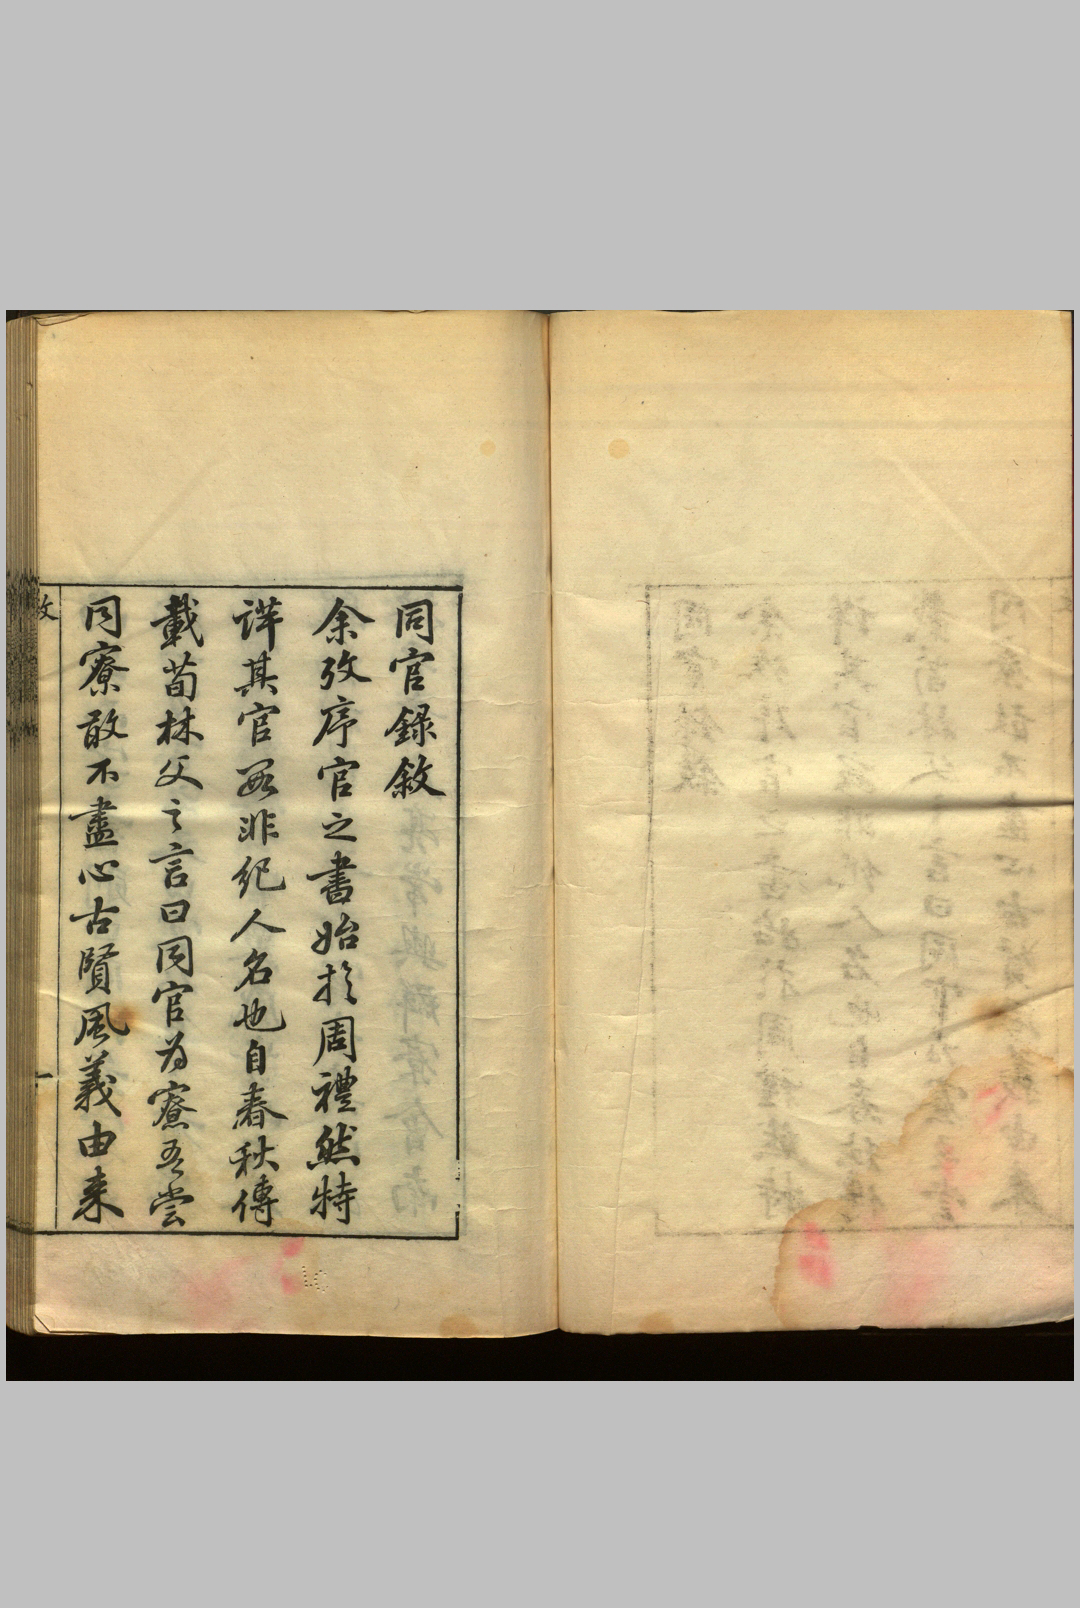 同官録敘
余攷序官之書始於周禮然特
詳其官而非紀人名也自春秋傳
載荀林父之言曰同官為寮吾嘗
同寮敢不盡心古賢風義由来
一